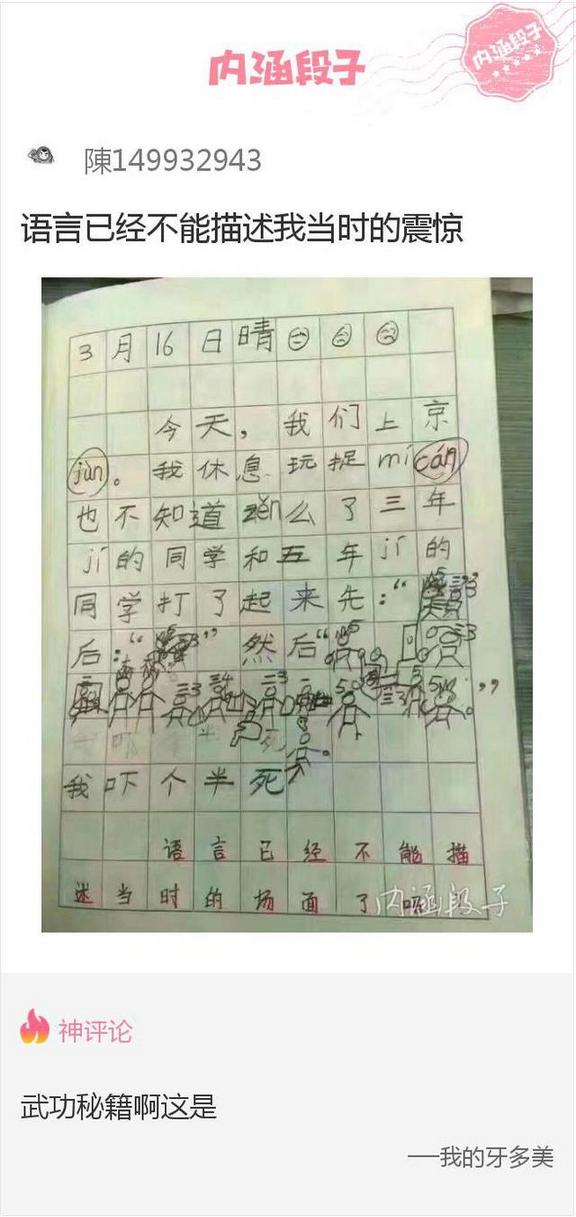 内涵段子
内涵段子
陳149932943
语言已经不能描述我当时的震惊
3月16日晴
今天，我们上京
jùn。我休息玩捉mí cán
也不知道zěn么了三年
jí的同学和五年jí的
同学打了起来先：“
后：“”然后“
”
我吓个半死
语言已经不能描
述当时的场面了
内涵段子
神评论
武功秘籍啊这是
──我的牙多美